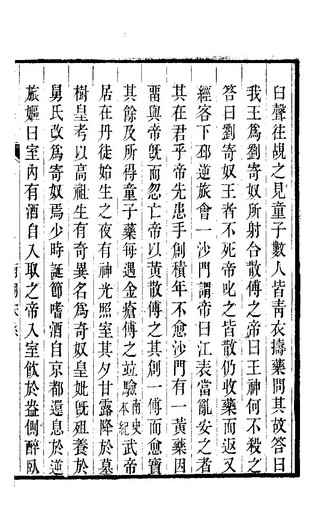 臼聲徃覘之見童子數人皆青衣擣藥問其故答曰
我王爲劉寄奴所射合散傅之帝曰王神何不殺之
答曰劉寄奴王者不死帝叱之皆散仍收藥而返又
經客下邳逆旅會一沙門謂帝曰江表當亂安之者
其在君乎帝先患手創積年不愈沙門有一黄藥因
畱與帝旣而忽亡帝以黄散傅之其創一傅而愈寶
其餘及所得童子藥每遇金瘡傅之竝驗南史本紀武帝
居在丹徒始生之夜有神光照室其夕甘露降於墓
樹皇考以高祖生有奇異名爲奇奴皇妣旣殂養於
舅氏改爲寄奴焉少時誕節嗜酒自京都還息於逆
旅嫗曰室內有酒自入取之帝入室飲於盎側醉臥